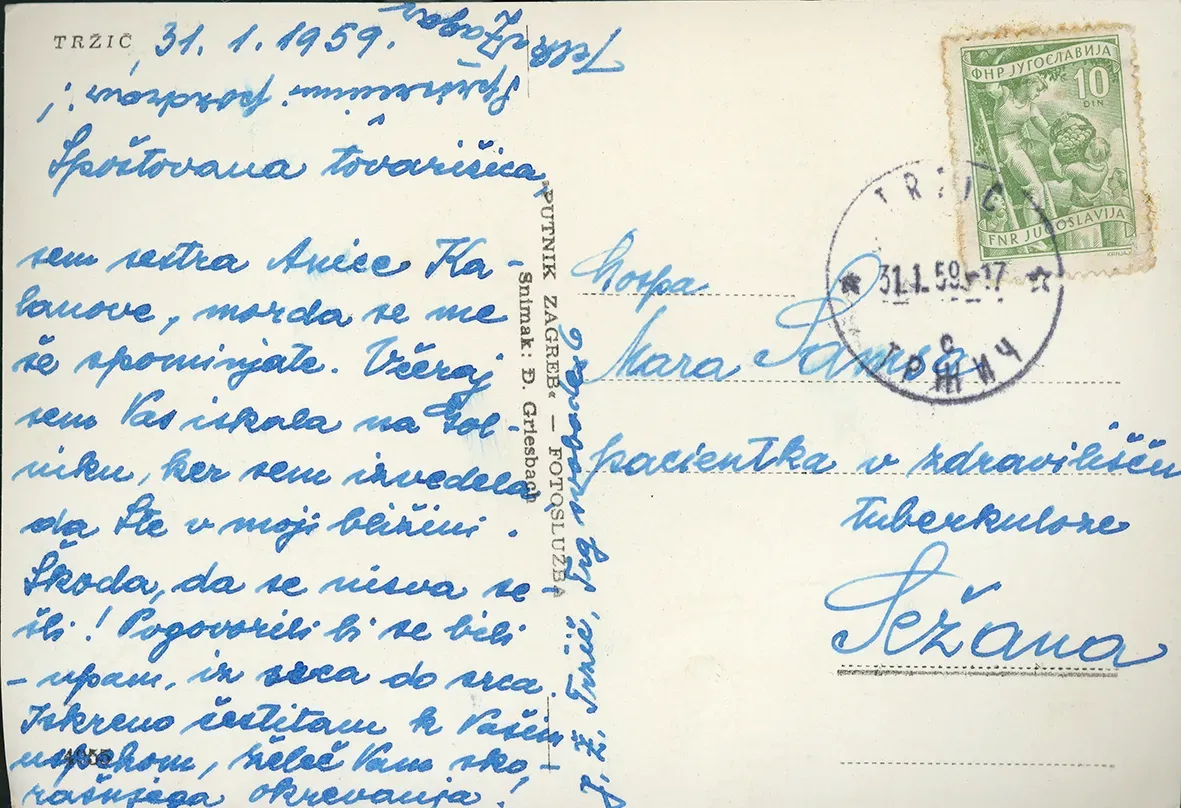 TRŽIČ, 31. 1. 1959.
Spoštovana tovarišica,
sem sestra Anice Ka-
lanove, morda se me
še spominjate. Včeraj
sem Vas iskala na Gol-
niku, ker sem izvedela
da Ste v moji bližini.
Škoda, da se nisva se-
šli! Pogovorili bi se bili
- upam, iz srca do srca.
Iskreno čestitam k Vašim
uspehom, želeč Vam sko-
rajšnjega okrevanja!
S prisrčnimi pozdravi!
Jelka Žagar
J. Ž. Tržič, Trg svobode
"PUTNIK ZAGREB" — FOTOSLUŽBA
Snimak: Đ. Griesbach
ФНР ЈУГОСЛАВИЈА
10
DIN
FNR JUGOSLAVIJA
TRŽIČ
31.1.59.-17
c
ТРЖИЧ
Gospa
Mara Samsa
pacientka v zdravilišču
tuberkuloze
Sežana